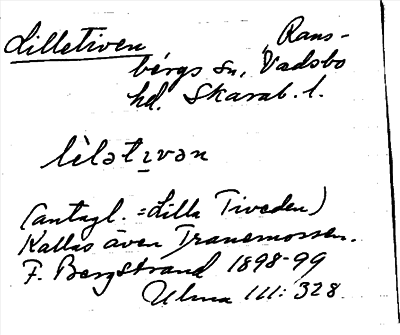 Lilletiven, Rans-
bergs sn, Vadsbo
hd. Skarab. l.
lìlətɪvən
(antagl. = Lilla Tiveden)
Kallas även Tranemossen.
F. Bergstrand 1898-99
Ulma 111: 328